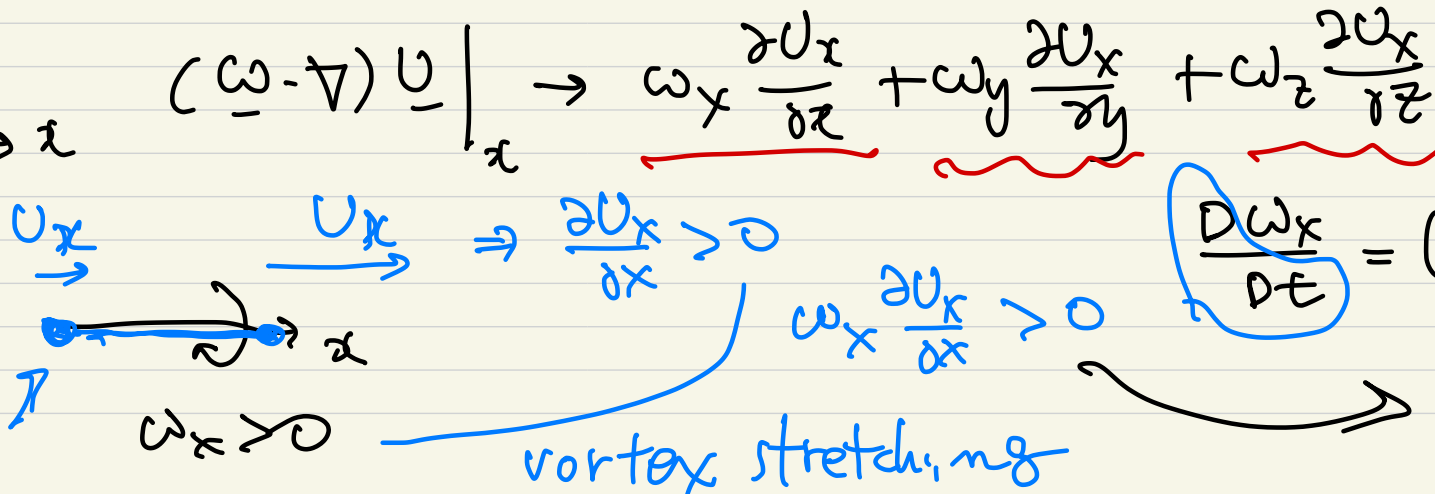 (ω·∇)U|ₓ → ωₓ ∂Uₓ/∂x + ω_y ∂Uₓ/∂y + ω_z ∂Uₓ/∂z
x
Uₓ Uₓ ⇒ ∂Uₓ/∂x > 0
Dωₓ/Dt = (
ωₓ ∂Uₓ/∂x > 0
x
ωₓ > 0
vortex stretching